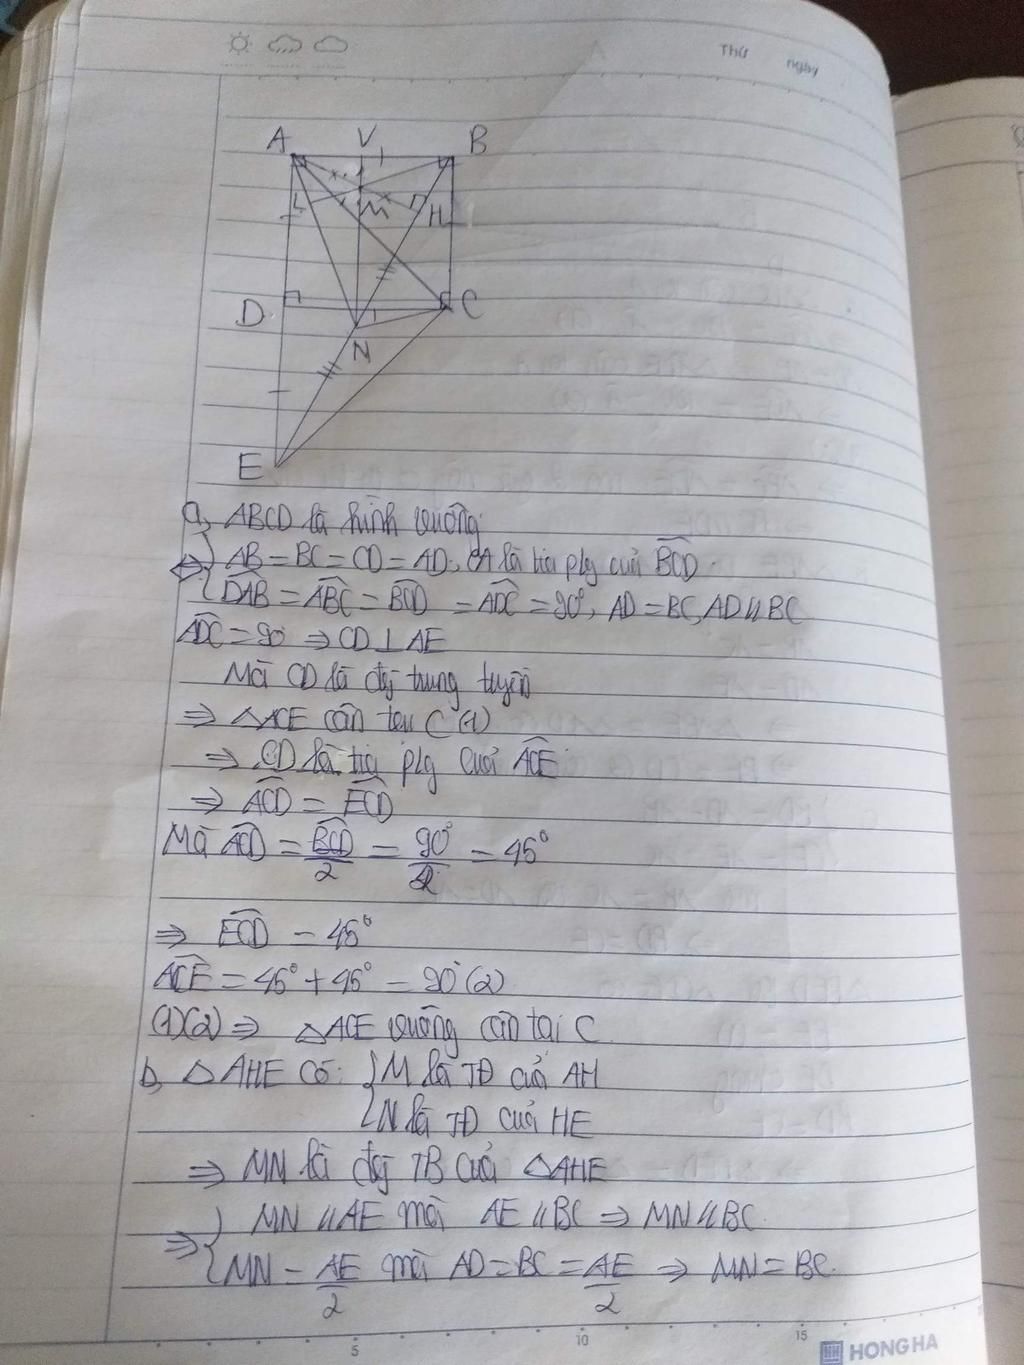 Thứ ngày
A V B
L M H
D C
N
E
a, ABCD là hình vuông
⇔ { AB = BC = CD = AD, CA là tia p/g của BCD
DAB = ABC = BCD = ADC = 90°, AD = BC, AD // BC
ADC = 90° ⇒ CD ⊥ AE
Mà CD là đg trung tuyến
⇒ △ACE cân tại C (1)
⇒ CD là tia p/g của ACE
⇒ ACD = ECD
Mà ACD = BCD/2 = 90°/2 = 45°
⇒ ECD = 45°
ACE = 45° + 45° = 90° (2)
(1)(2) ⇒ △ACE vuông cân tại C
b, △AHE có: { M là TĐ của AH
N là TĐ của HE
⇒ MN là đg TB của △AHE
⇒ { MN // AE mà AE // BC ⇒ MN // BC
MN = AE/2 mà AD = BC = AE/2 ⇒ MN = BC
5 10 15
HONG HA